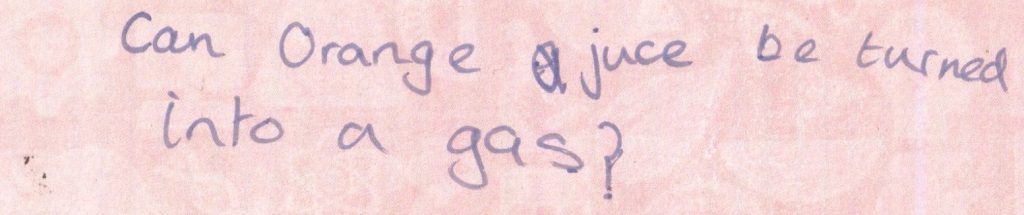 Can Orange juce be turned
into a gas?